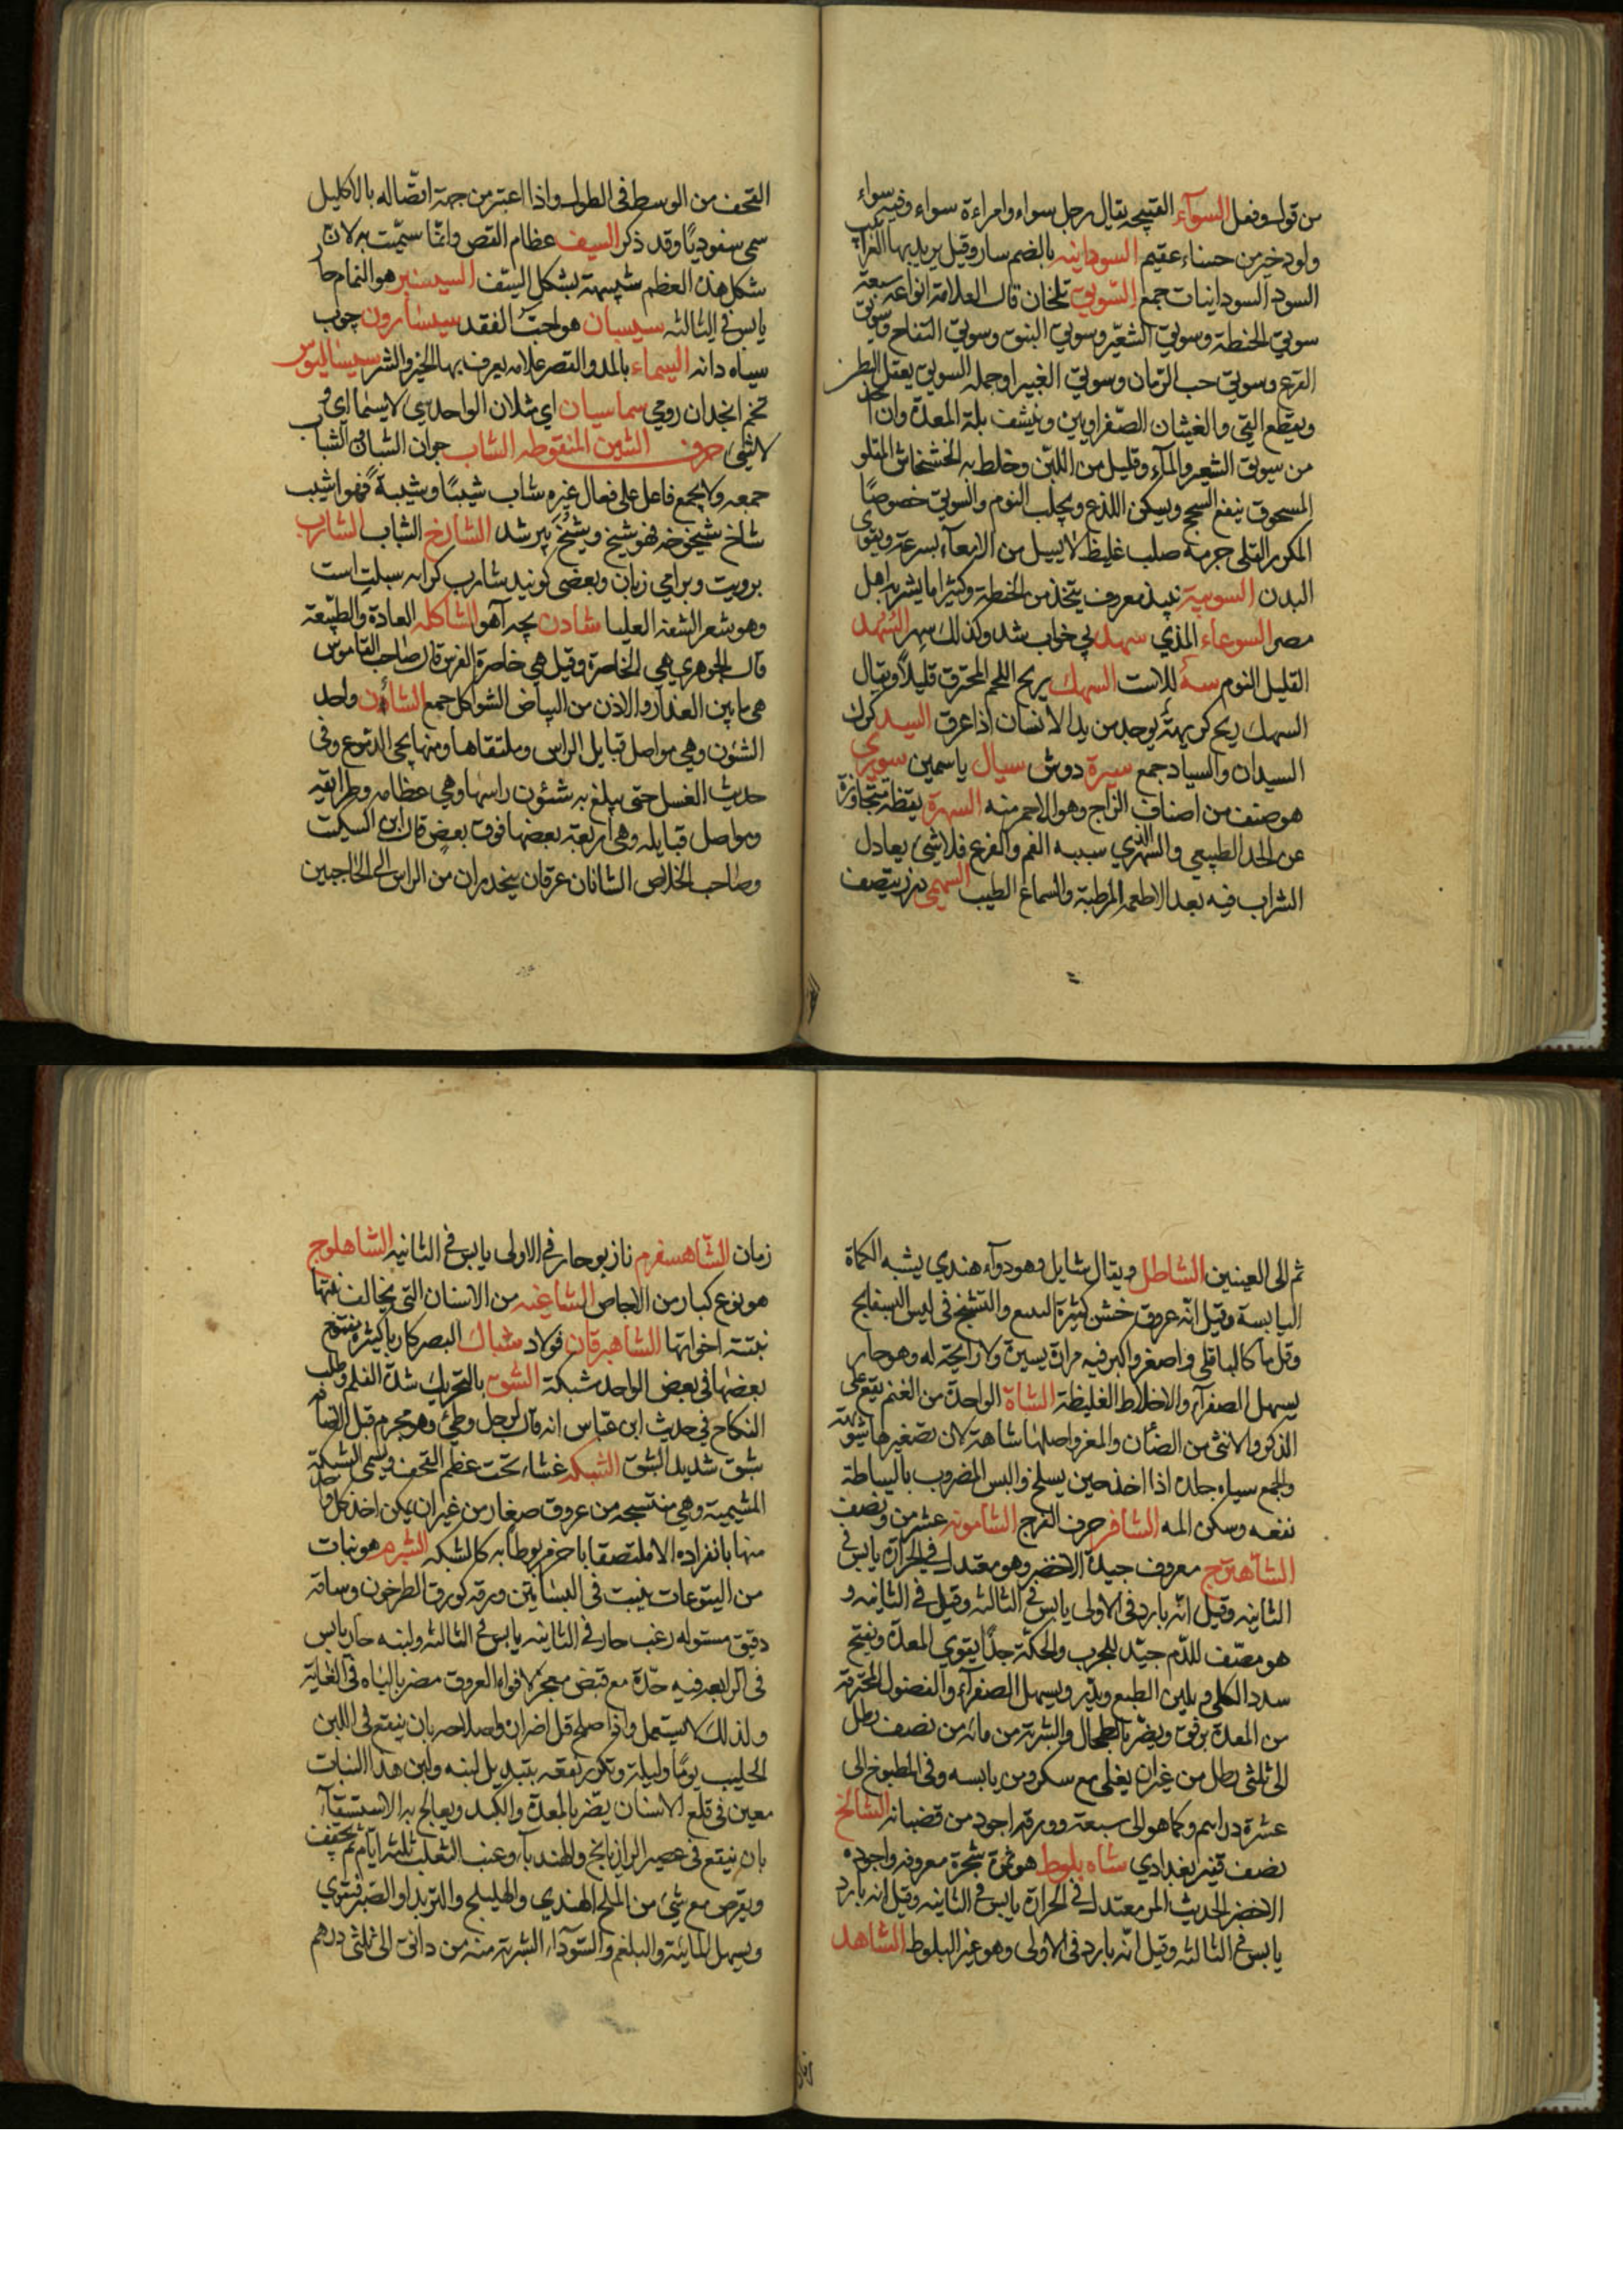 من قول وفعل السوآء القبيحة يقال رجل سواء وامراءة سواء وفيه سواء
ولود خير من حسناء عقيم السودانيه بالضم سار وقيل يريد بها الغرابيب
السود السودانيات جمع السويق تلخان قال العلامة انواعه سبعة
سويق الحنطة وسويق الشعير وسويق النبق وسويق التفاح وسويق
القرع وسويق حب الرمان وسويق الغبيرا وجملة السويق يعقل البطن
ويقطع القي والغثيان الصفراويين وينشف بلة المعدة وان اتخذ
من سويق الشعير والمآء وقليل من اللبن وخلط به الخشخاش المقلو
المسحوق ينفع السحج ويسكن اللذع ويجلب النوم والسويق خصوصًا
المكرر القلى جرمه صلب غليظ لا يسيل من الامعآء بسرعة ويقوى
البدن السوبية نبيذ معروف يتخذ من الحنطة وكثيرا ما يشربه اهل
مصر السوعاء المذي سهد بي خواب شد وكذلك سهر السهد
القليل النوم سه للاست السهك ريح اللحم المحترق قليلًا ويقال
السهك ريح كريهة يوجد من يد الانسان اذا عرق السيد كرك
السيدان والسياد جمع سيرة دوش سيال ياسمين سوري
هو صنف من اصناف الزاج وهو الاحمر منه السهرة يقظة متجاوزة
عن الحد الطبيعي والسهر الذي سببه الغم والفزع فلا شئ يعادل
الشراب فيه بعد الاطعمة المرطبة والسماع الطيب السهمي درز ينصف
القحف من الوسط في الطول واذا اعتبر من جهة اتصاله بالاكليل
سمي سفوديًا وقد ذكر السيف عظام القص وانما سميت به لان
شكل هذه العظم شبيهة بشكل السيف السيسنبر هو النمام حار
يابس في الثالثه سيسبان هو حب الفقد سيسارون چوب
سياه دانه السيماء بالمد والقصر علامه يعرف بها الخير والشر سيساليوس
تخم انجدان رومي سماسيان اي مثلان الواحد سي لاسيما اي و
لا مثل حرف الشين المنقوطه الشاب جوان الشبان الشباب
جمعه ولا يجمع فاعل على فعال غيره شاب شيبًا وشيبة فهو اشيب
شاخ شيخوخة فهو شيخ ويشيخ پير شد الشارخ الشاب الشارب
بروت وبرامي زبان وبعضي گويند شارب كرانه سبلت است
وهو شعر الشفة العليا شادن بچه آهو الشاكله العادة والطبيعة
قال الجوهري هي الخاصرة وقيل هي خاصرة الفرس قال صاحب القاموس
هي ما بين العذار والاذن من البياض الشواكل جمع الشأن واحد
الشئون وهي مواصل قبايل الراس وملتقاها ومنها يجي الدموع وفي
حديث الغسل حتى يبلغ به شئون راسها وهي عظامه وطرايقه
ومواصل قبايله وهي اربعة بعضها فوق بعض قال ابن السكيت
وصاحب الخلاص الشانان عرقان ينحدران من الراس الى الحاجبين
ثم الى العينين الشاطل ويقال شايل وهو دوآء هندي يشبه الكماة
اليابسة وقيل انه عروق خشن كثيرة والتشنج في ليس البسفايج
وقدرها كالباقلي واصغر واكبر فيه مرارة يسيرة ولا رايحة له وهو حار
يسهل الصفرآء والاخلاط الغليظة الشاة الواحدة من الغنم يقع على
الذكر والانثى من الضأن والمعز واصلها شاهة لان تصغيرها شويهة
والجمع سياه جلده اذا اخذ حين يسلخ والبس المضروب بالسياط
نفعه وسكن المه الشافر حرف الفرج الشامونه عشر من ونصف
الشاهترج معروف جيدة الاخضر وهو معتدل في الحرارة يابس في
الثانيه وقيل انه بارد في الاولى يابس في الثالثه وقيل في الثانيه و
هو مصف للدم جيد للجرب والحكة جدًا يقوي المعدة ويفتح
سدد الكلي ويلين الطبع ويدر ويسهل الصفرآء والفضول المحترقة
من المعدة برفق ويضر بالطحال والشربة من مائه من نصف رطل
الى ثلثي رطل من غير ان يغلي مع سكر ومن يابسه وفي المطبوخ الى
عشرة دراهم وكما هو الى سبعة وورقه اجود من قضبانه الشالخ
نصف قفيز بغدادي شاه بلوط هو ثمرة شجرة معروفه واجوده
الاخضر الحديث المر معتدل في الحرارة يابس في الثانيه وقيل انه بارد
يابس في الثالثه وقيل انه بارد في الاولى وهو غير البلوط الشاهد
زمان الشاهسفرم نازبو حار في الاولى يابس في الثانيه الشاهلوج
هو نوع كبار من الاجاص الشاغيه من الاسنان التي يخالف نبتها
نبتة اخواتها الشاهبرقان فولاد شباك البصر كاريا كيثره يقع
بعضها في بعض الواحد شبكة الشبق بالتحريك شدة الغلمة وطلب
النكاح في حديث ابن عباس انه قال لرجل وطئ وهو محرم قبل الافاضة
شبق شديد الشبق الشبكه غشاء تحت عظم القحف ويسمى الشبكة
المشيمية وهي منتسجه من عروق صغار من غير ان يمكن اخذ كل واحد
منها بانفراده الا ملتصقا باخر مربوطا به كالشبكه الشبرم هو نبات
من اليتوعات ينبت في البساتين ورقه كورق الطرخون وساقه
دقيق مستوله زغب حار في الثانيه يابس في الثالثه ولبنه حار يابس
في الرابعه فيه حدة مع قبض مفجر لافواه العروق مضر بالباه في الغاية
ولذلك لا يستعمل واذا اصلح قل اضراره واصلاحه بان ينقع في اللبن
الحليب يومًا وليلة وتكرر نقعه بتبديل لبنه ولبن هذا النبات
معين في قلع الاسنان يضر بالمعدة والكبد ويعالج به الاستسقآء
بان ينقع في عصير الرازيانج والهندبآء وعنب الثعلب ثلثة ايام ثم يجفف
ويقرص مع شئ من الملح الهندي والهليلج والتربد او الصبر فيقوي
ويسهل المائية والبلغم والسودآء الشربة منه من دانق الى ثلثي درهم